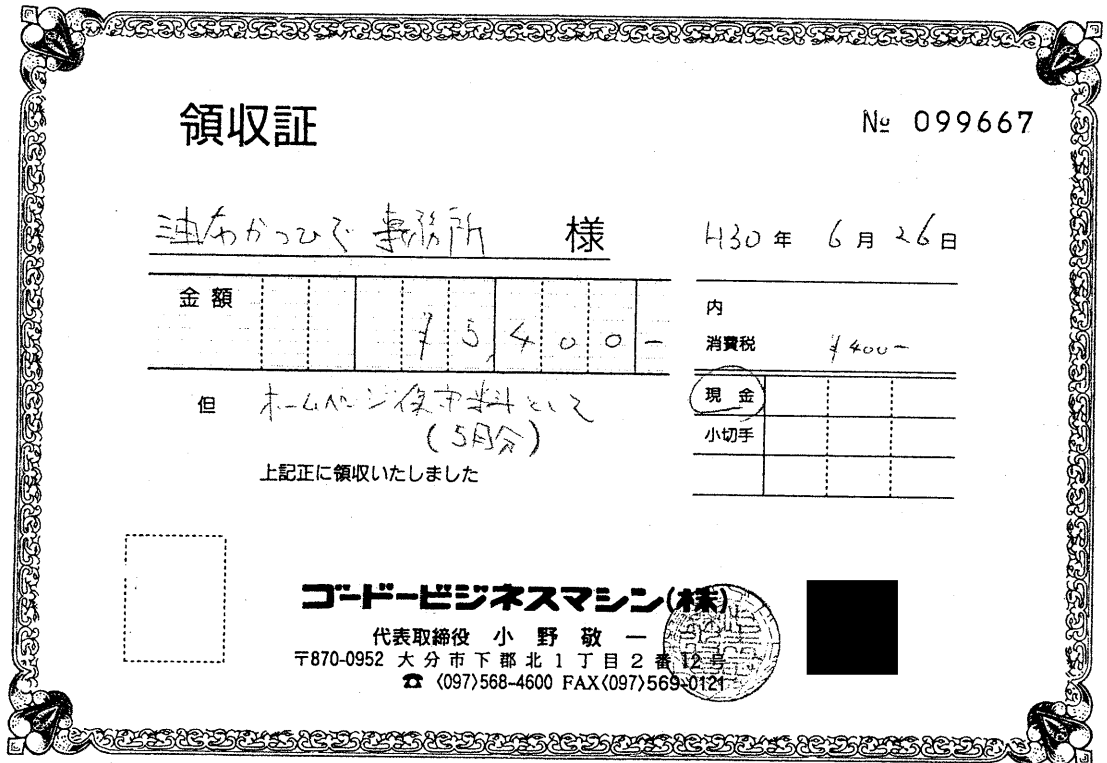 領収証
№ 099667
油布かつひで事務所 様
H30年 6月 26日
金額 ¥5,400-
内
消費税 ¥400-
現金
小切手
但 ホームページ保守料として
(5月分)
上記正に領収いたしました
ゴードービジネスマシン(株)
代表取締役 小野敬一
〒870-0952 大分市下郡北1丁目2番12号
☎〈097〉568-4600 FAX〈097〉569-0121